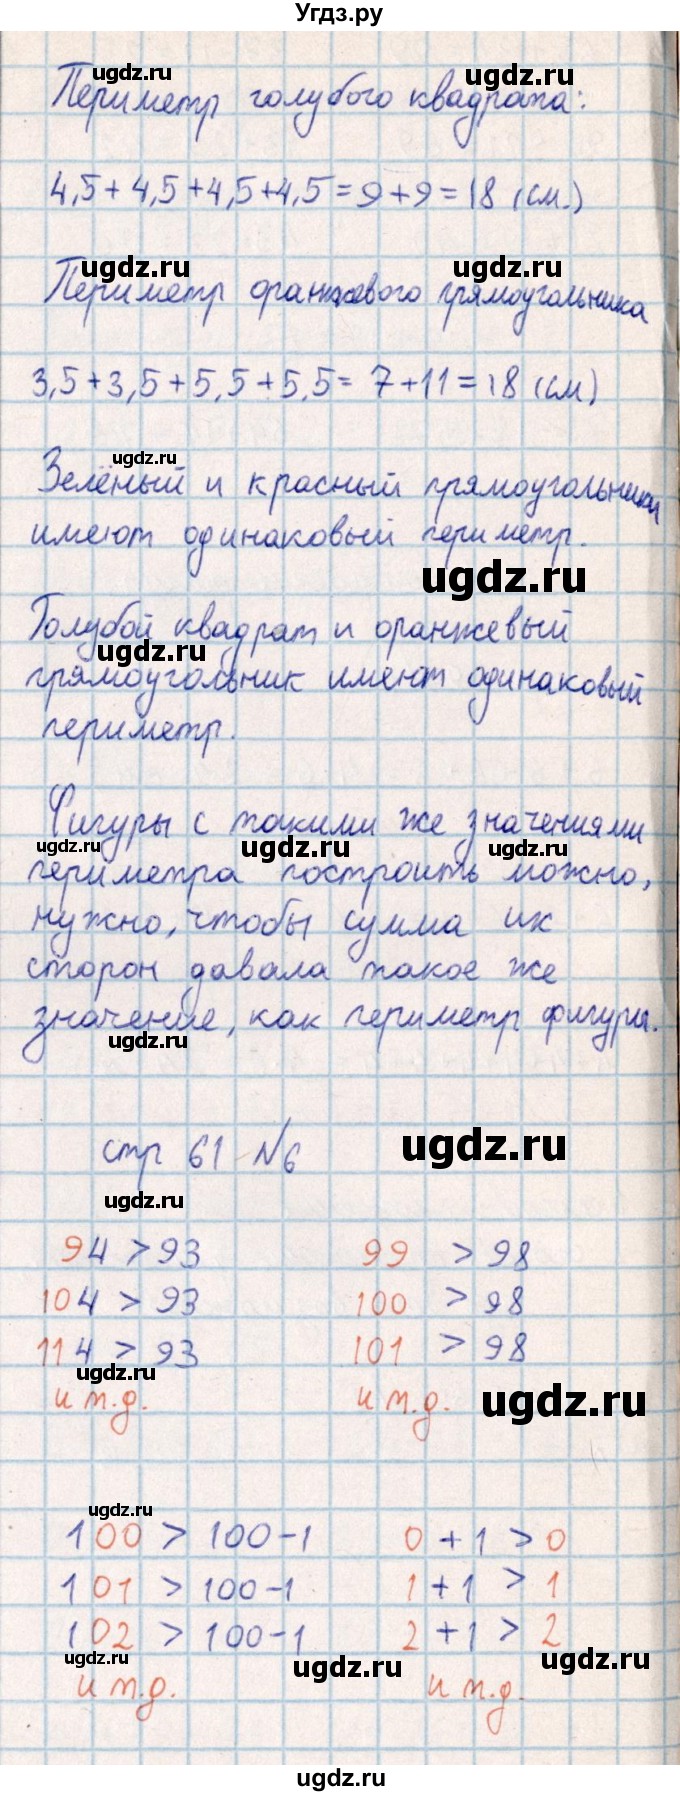 Угдз.ру
ugdz.ru ugdz.ru
Периметр голубого квадрата:
4,5+4,5+4,5+4,5=9+9=18 (см.)
ugdz.ru ugdz.ru
Периметр оранжевого прямоугольника
3,5+3,5+5,5+5,5= 7+11=18 (см)
ugdz.ru
Зелёный и красный прямоугольники
имеют одинаковый периметр.
ugdz.ru
Голубой квадрат и оранжевый
ugdz.ru
прямоугольник имеют одинаковый
периметр.
Фигуры с такими же значениями
ugdz.ru ugdz.ru ugdz.ru
периметра построить можно,
нужно, чтобы сумма их
сторон давала такое же
значение, как периметр фигуры.
ugdz.ru
стр 61 №6 ugdz.ru
ugdz.ru
94 > 93 99 > 98
104 > 93 100 > 98
114 > 93 101 > 98
и т.д. и т.д. ugdz.ru
ugdz.ru
100 > 100-1 0+1 > 0
101 > 100-1 1+1 > 1
102 > 100-1 2+1 > 2
ugdz.ru ugdz.ru ugdz.ru
и т.д. и т.д.
ugdz.ru